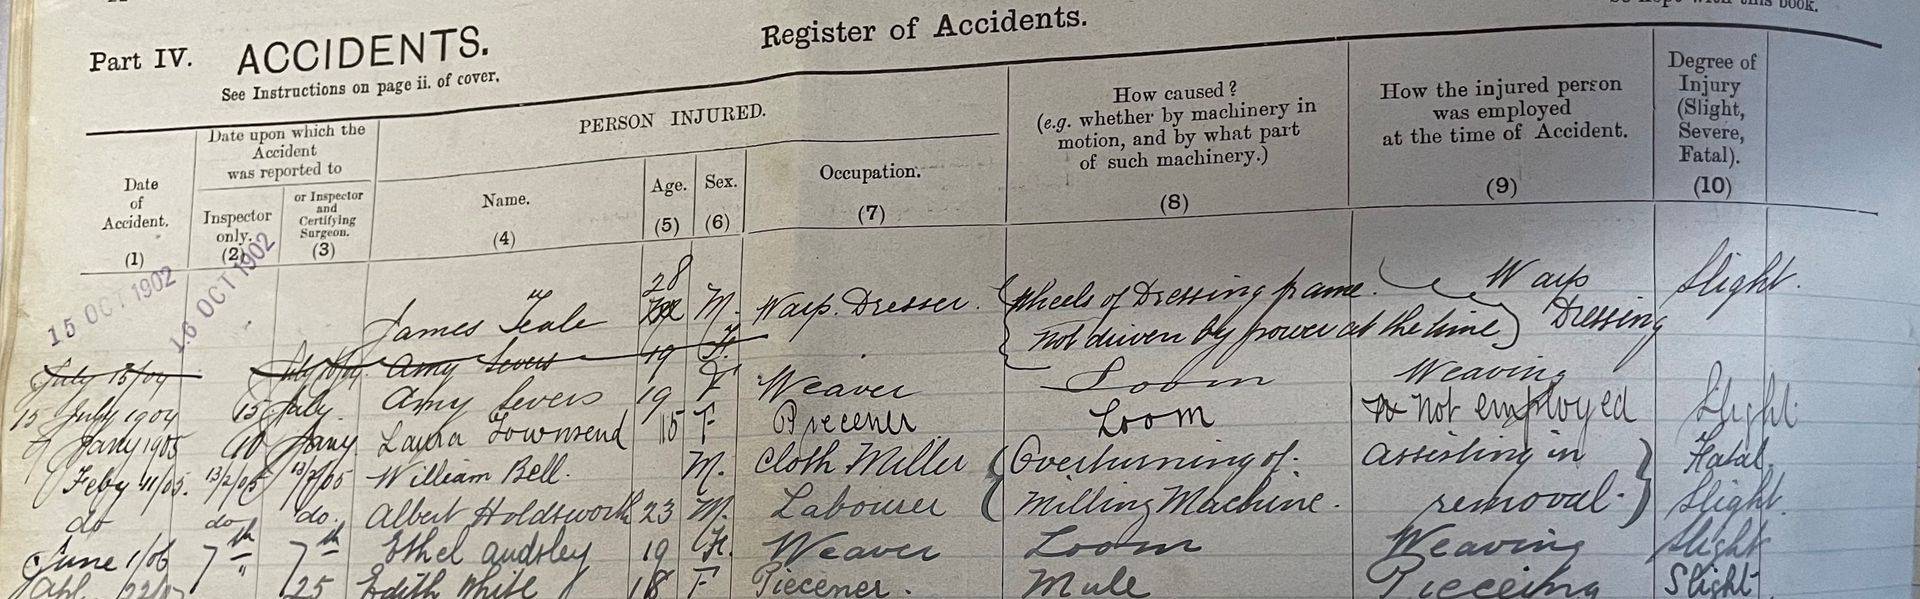 Part IV. ACCIDENTS.
See Instructions on page ii. of cover.
Register of Accidents.
with this book.
Date of Accident. (1)
Date upon which the Accident was reported to
Inspector only. (2)
or Inspector and Certifying Surgeon. (3)
PERSON INJURED.
Name. (4)
Age. (5)
Sex. (6)
Occupation. (7)
How caused? (e.g. whether by machinery in motion, and by what part of such machinery.) (8)
How the injured person was employed at the time of Accident. (9)
Degree of Injury (Slight, Severe, Fatal). (10)
15 OCT 1902 16 OCT 1902 James Teale 28 M. Warp Dresser. Wheels of Dressing frame. Warp Slight.
not driven by power at the time Dressing
July 15/04 Amy Severs 19 F.
15 July 1904 15 July. Amy Severs 19 F Weaver Loom Weaving
7 Jany 1905 10 Jany Laura Townsend 15 F Piecener Loom Not employed Slight
Feby 11/05. 13/2/05 13/2/05 William Bell. M. Cloth Miller Overturning of Assisting in Fatal
do do do. Albert Holdsworth 23 M. Labourer Milling Machine. removal. Slight.
June 1/06 7th 7th Ethel Audsley 19 F. Weaver Loom Weaving Slight
25 Edith White 18 F Piecener. Mule Pieceing Slight